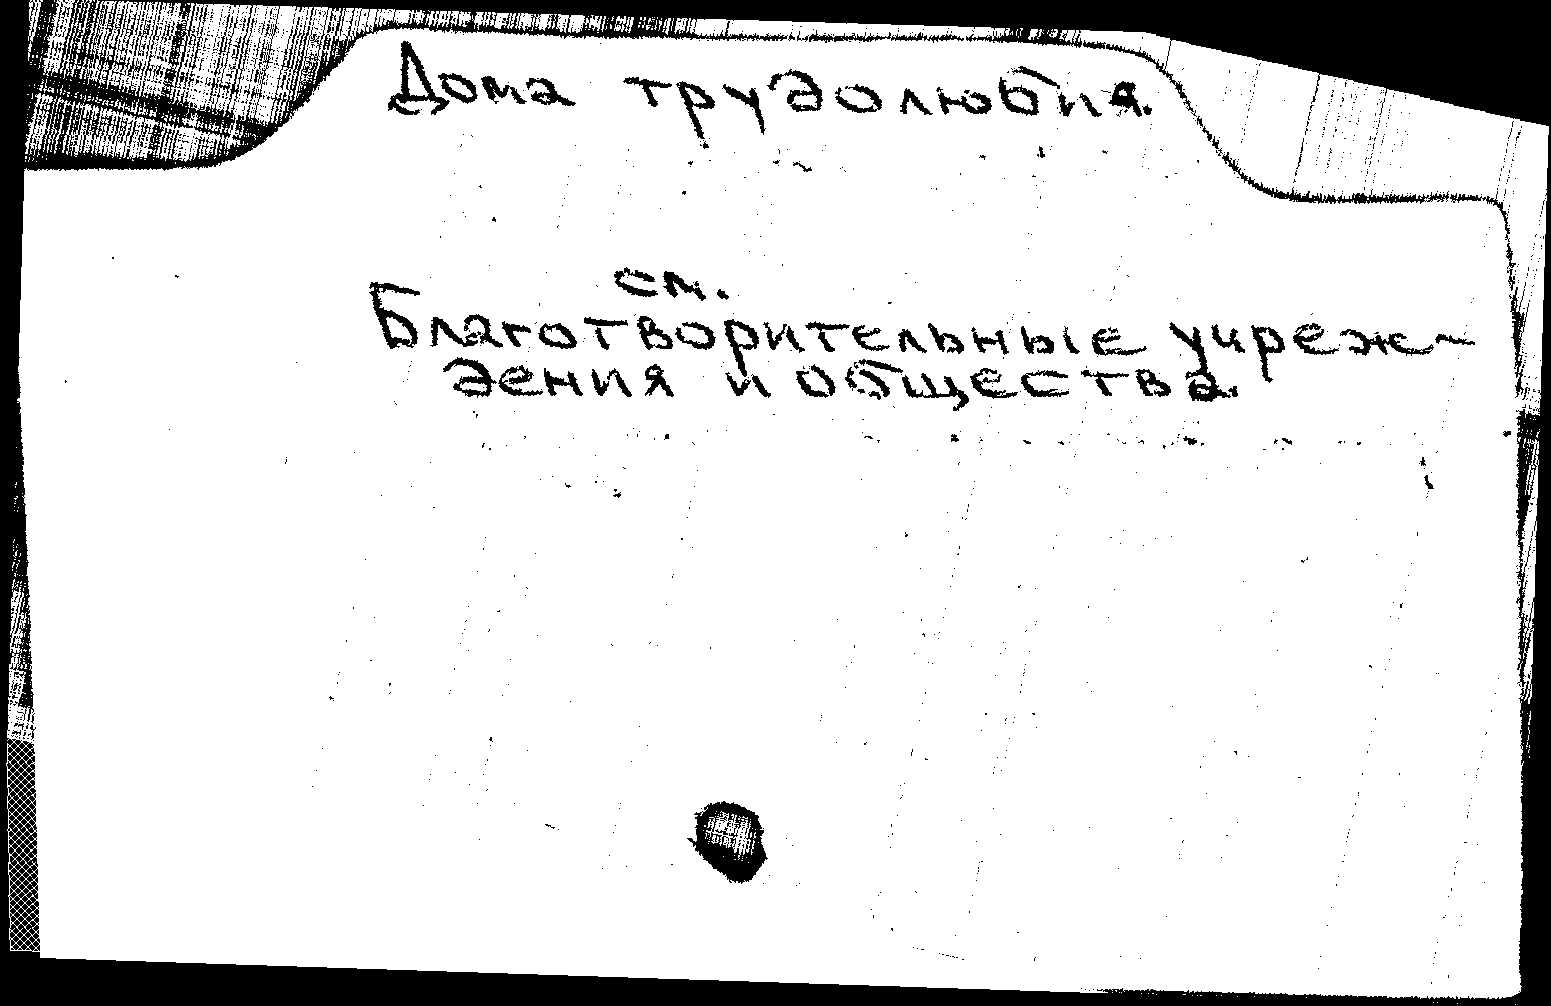 Дома трудолюбия.
см.
Благотворительные учреж-
дения и общества.